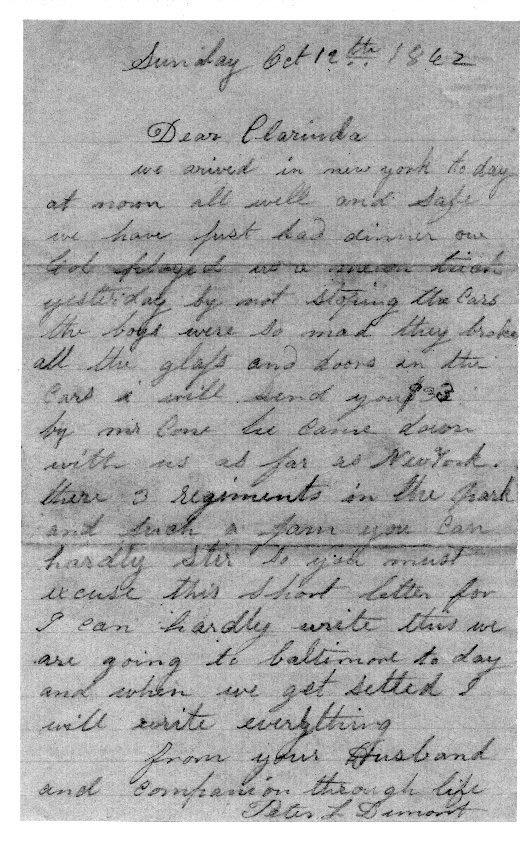 Sunday Oct 12th 1862
Dear Clarinda
we arived in new york to day
at noon all well and safe
we have just had dinner our
Col played us a mean trick
yesterday by not stoping the cars
the boys were so mad they broke
all the glass and doors in the
cars i will send you $33
by mr Cone he came down
with us as far as New York.
there 3 regiments in the park
and such a jam you can
hardly ster so you must
excuse this short letter for
I can hardly write this we
are going to baltimore to day
and when we get setted I
will write everything
from your Husband
and companion through life
Peter L Dumont